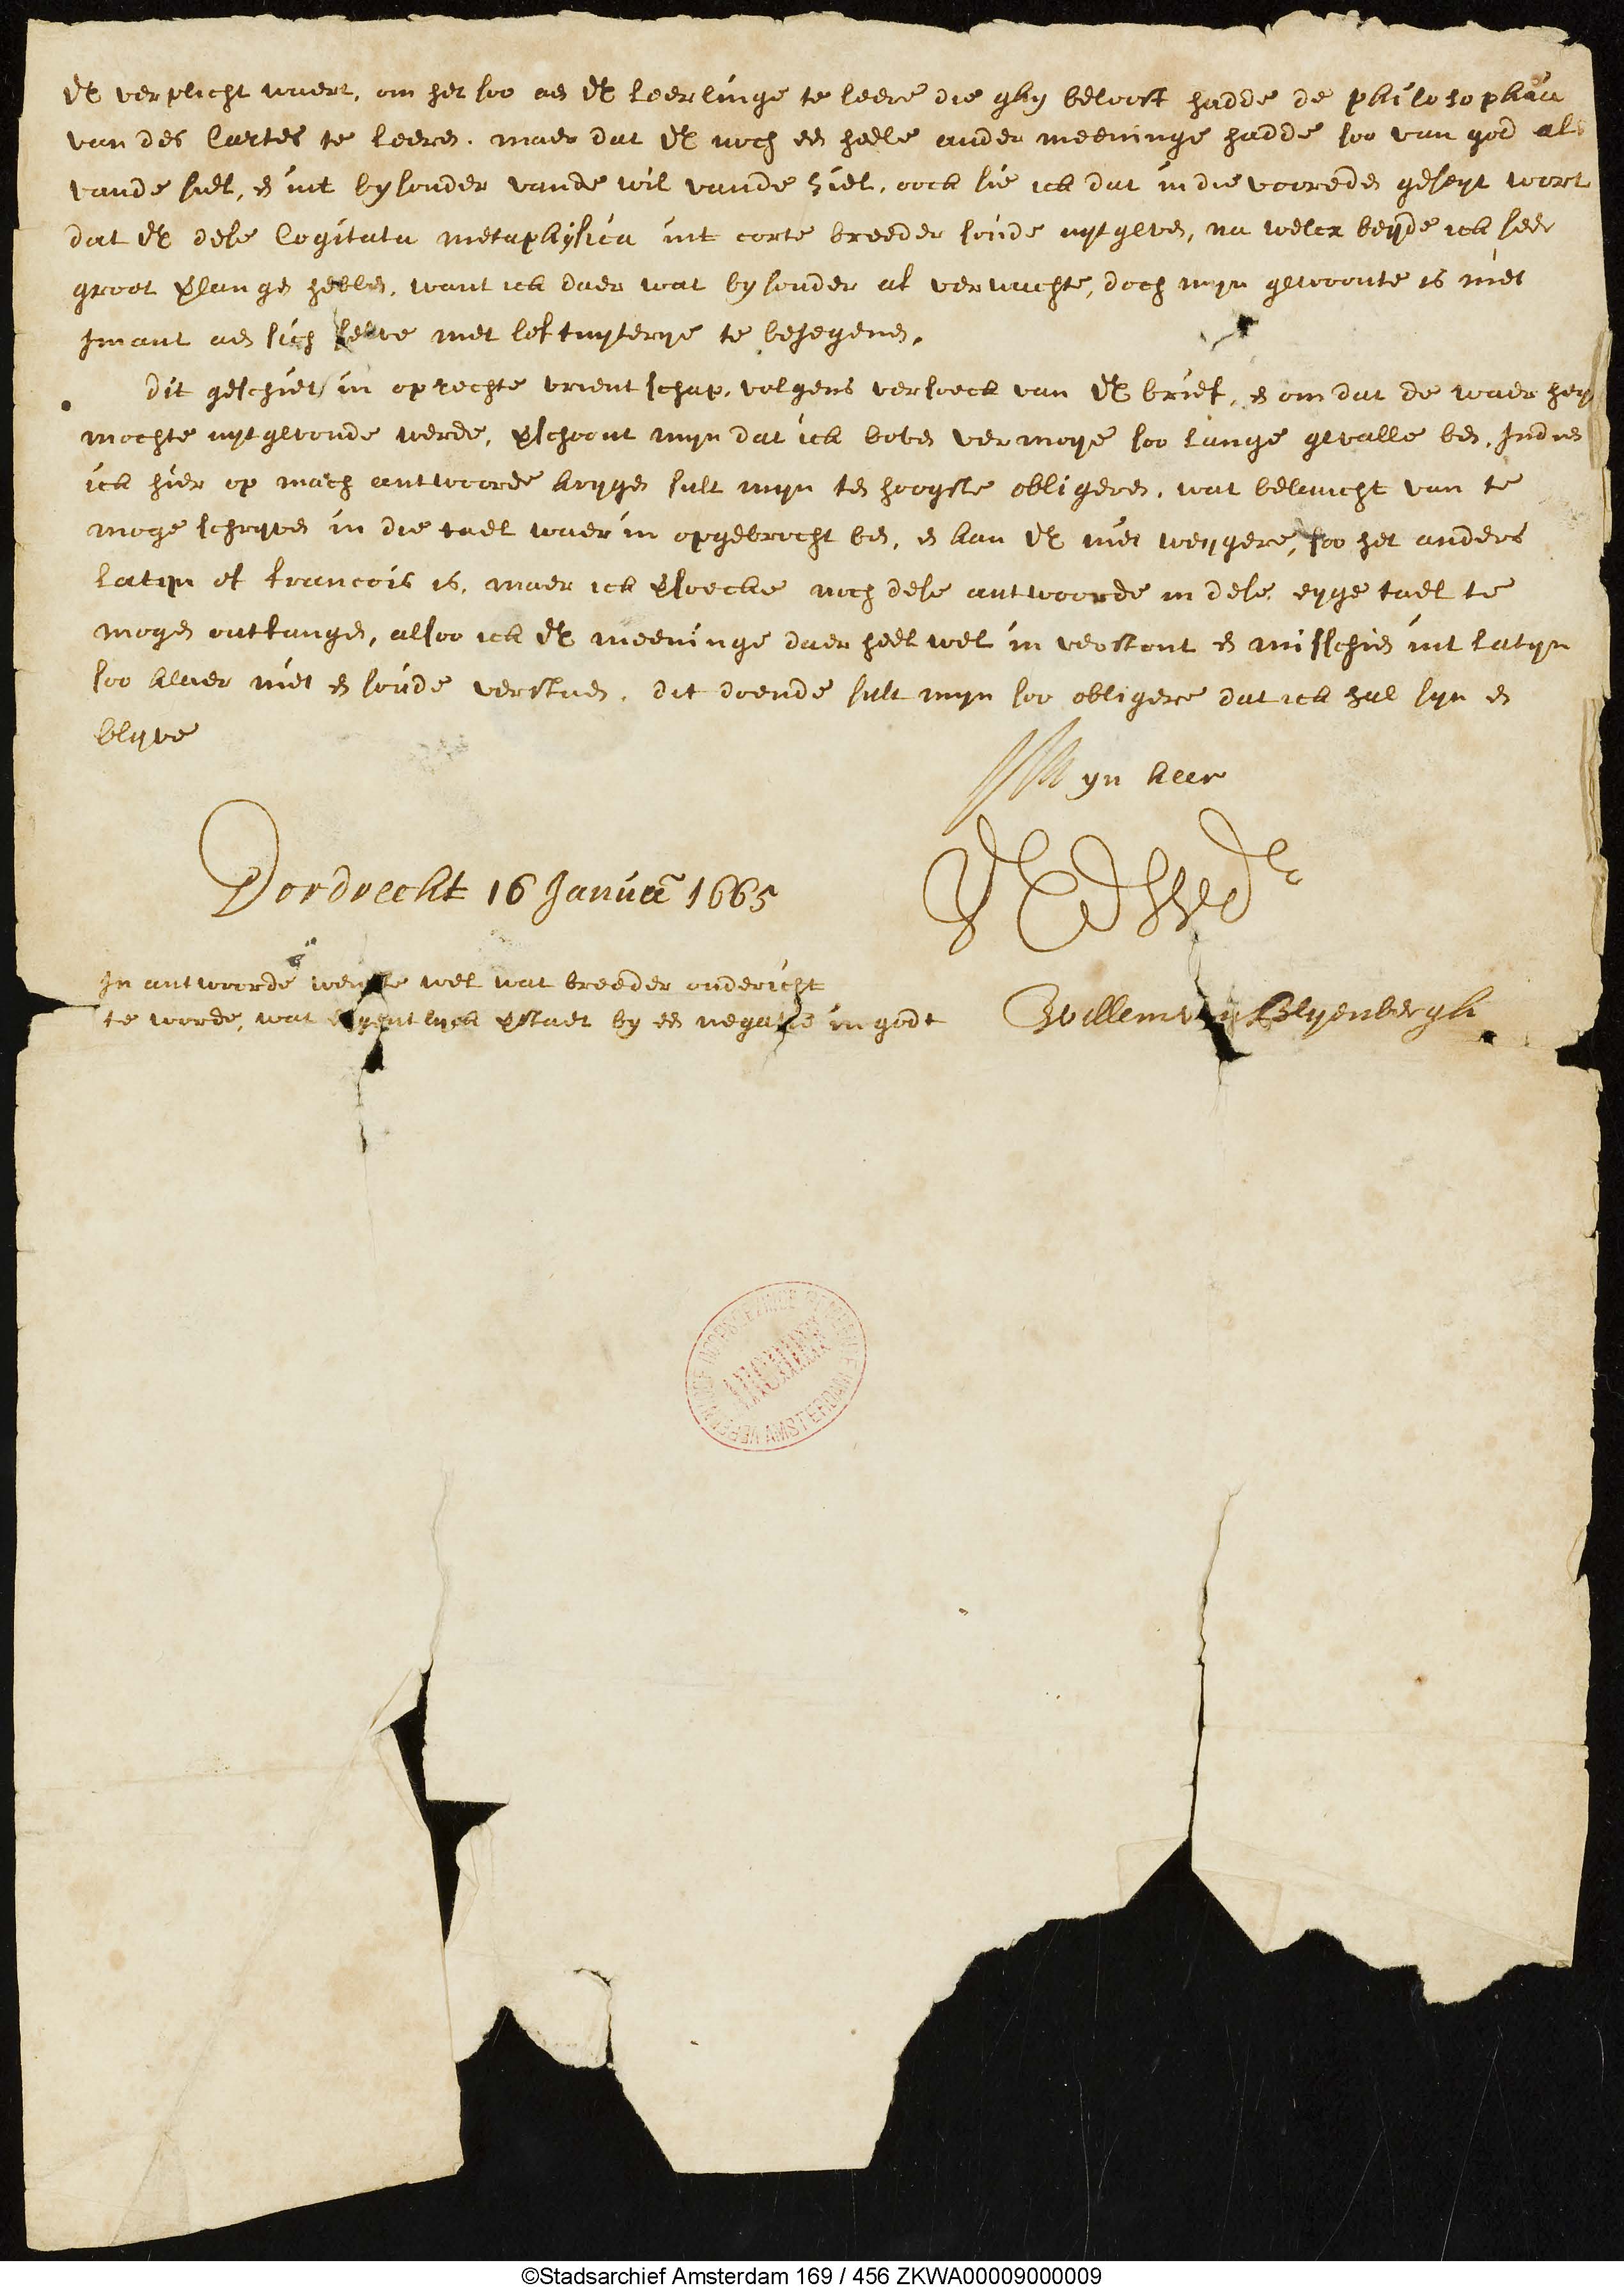 UE verplicht waert, om het soo aen UE leerlinge te leere die ghy belooft hadde de philosophia
van des Cartes te leeren. maer dat UE noch een heele ander meeninge hadde soo van god als
vande siel, en int bysonder vande wil vande ziel, oock sie ick dat in die vooreden geseyt wort
dat UE dese Cogitata metaphysica int corte breeder soude uytgeven, na welcx beyde ick seer
groot Vlangen hebben, want ick daer wat bysonder af verwachte, doch myn gewoonte is niet
Imant aen sich selve met loftuyterye te bejegenen.
Dit geschiet in oprechte vrientschap, volgens versoeck van UE brief, en om dat de waerhey
mochte uytgevonde werde, Vschoont myn dat ick boven vermoye soo lange gevalle ben, Indien
ick hier op mach antwoorde krygen sult myn ten hoogste obligeren, wat belancht van te
moge schryven in die tael waer in opgebrocht ben, en kan UE niet weygere, soo het anders
latyn of francois is, maer ick Vsoecke noch dese antwoorde in dese eyge tael te
mogen ontfangen, alsoo ick UE meeninge daer heel wel in verstont en misschien int latyn
soo klaer niet en soude verstaen. dit doende sult myn soo obligere dat ick zal syn en
blyve
Myn heer
Dordrecht 16 Janua 1665
In antwoorde wenste wel wat breeder ondericht
te worde, wat eygentlyck Vstaet by een negatie in godt
Willem van Blyenbergh
AMSTERDAM
©Stadsarchief Amsterdam 169 / 456 ZKWA00009000009